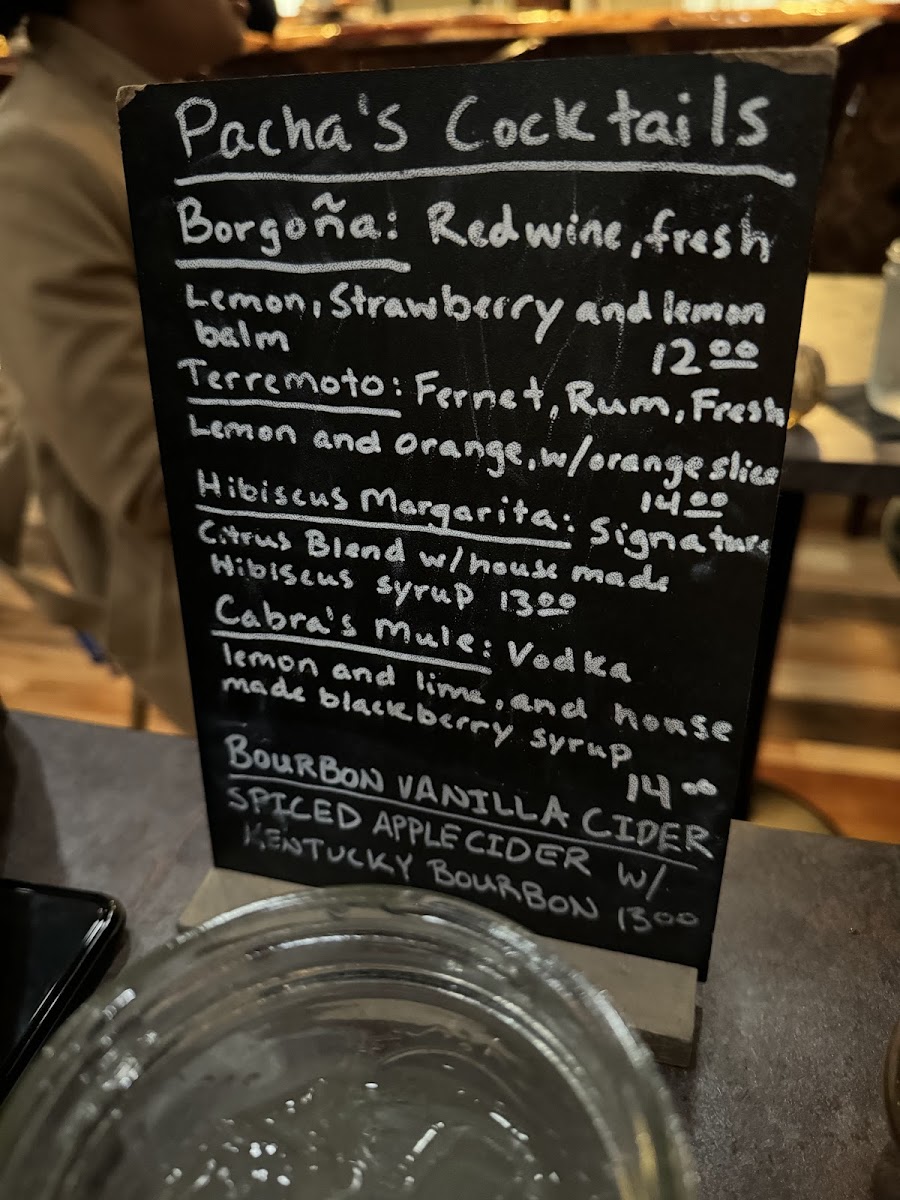 Pacha's Cocktails
Borgoña: Red wine, fresh
Lemon, Strawberry and lemon
balm 12.00
Terremoto: Fernet, Rum, Fresh
Lemon and orange, w/orange slice
14.00
Hibiscus Margarita: Signature
Citrus Blend w/house made
Hibiscus syrup 13.00
Cabra's Mule: Vodka
lemon and lime, and house
made blackberry syrup
14.00
BOURBON VANILLA CIDER
SPICED APPLE CIDER W/
KENTUCKY BOURBON 13.00